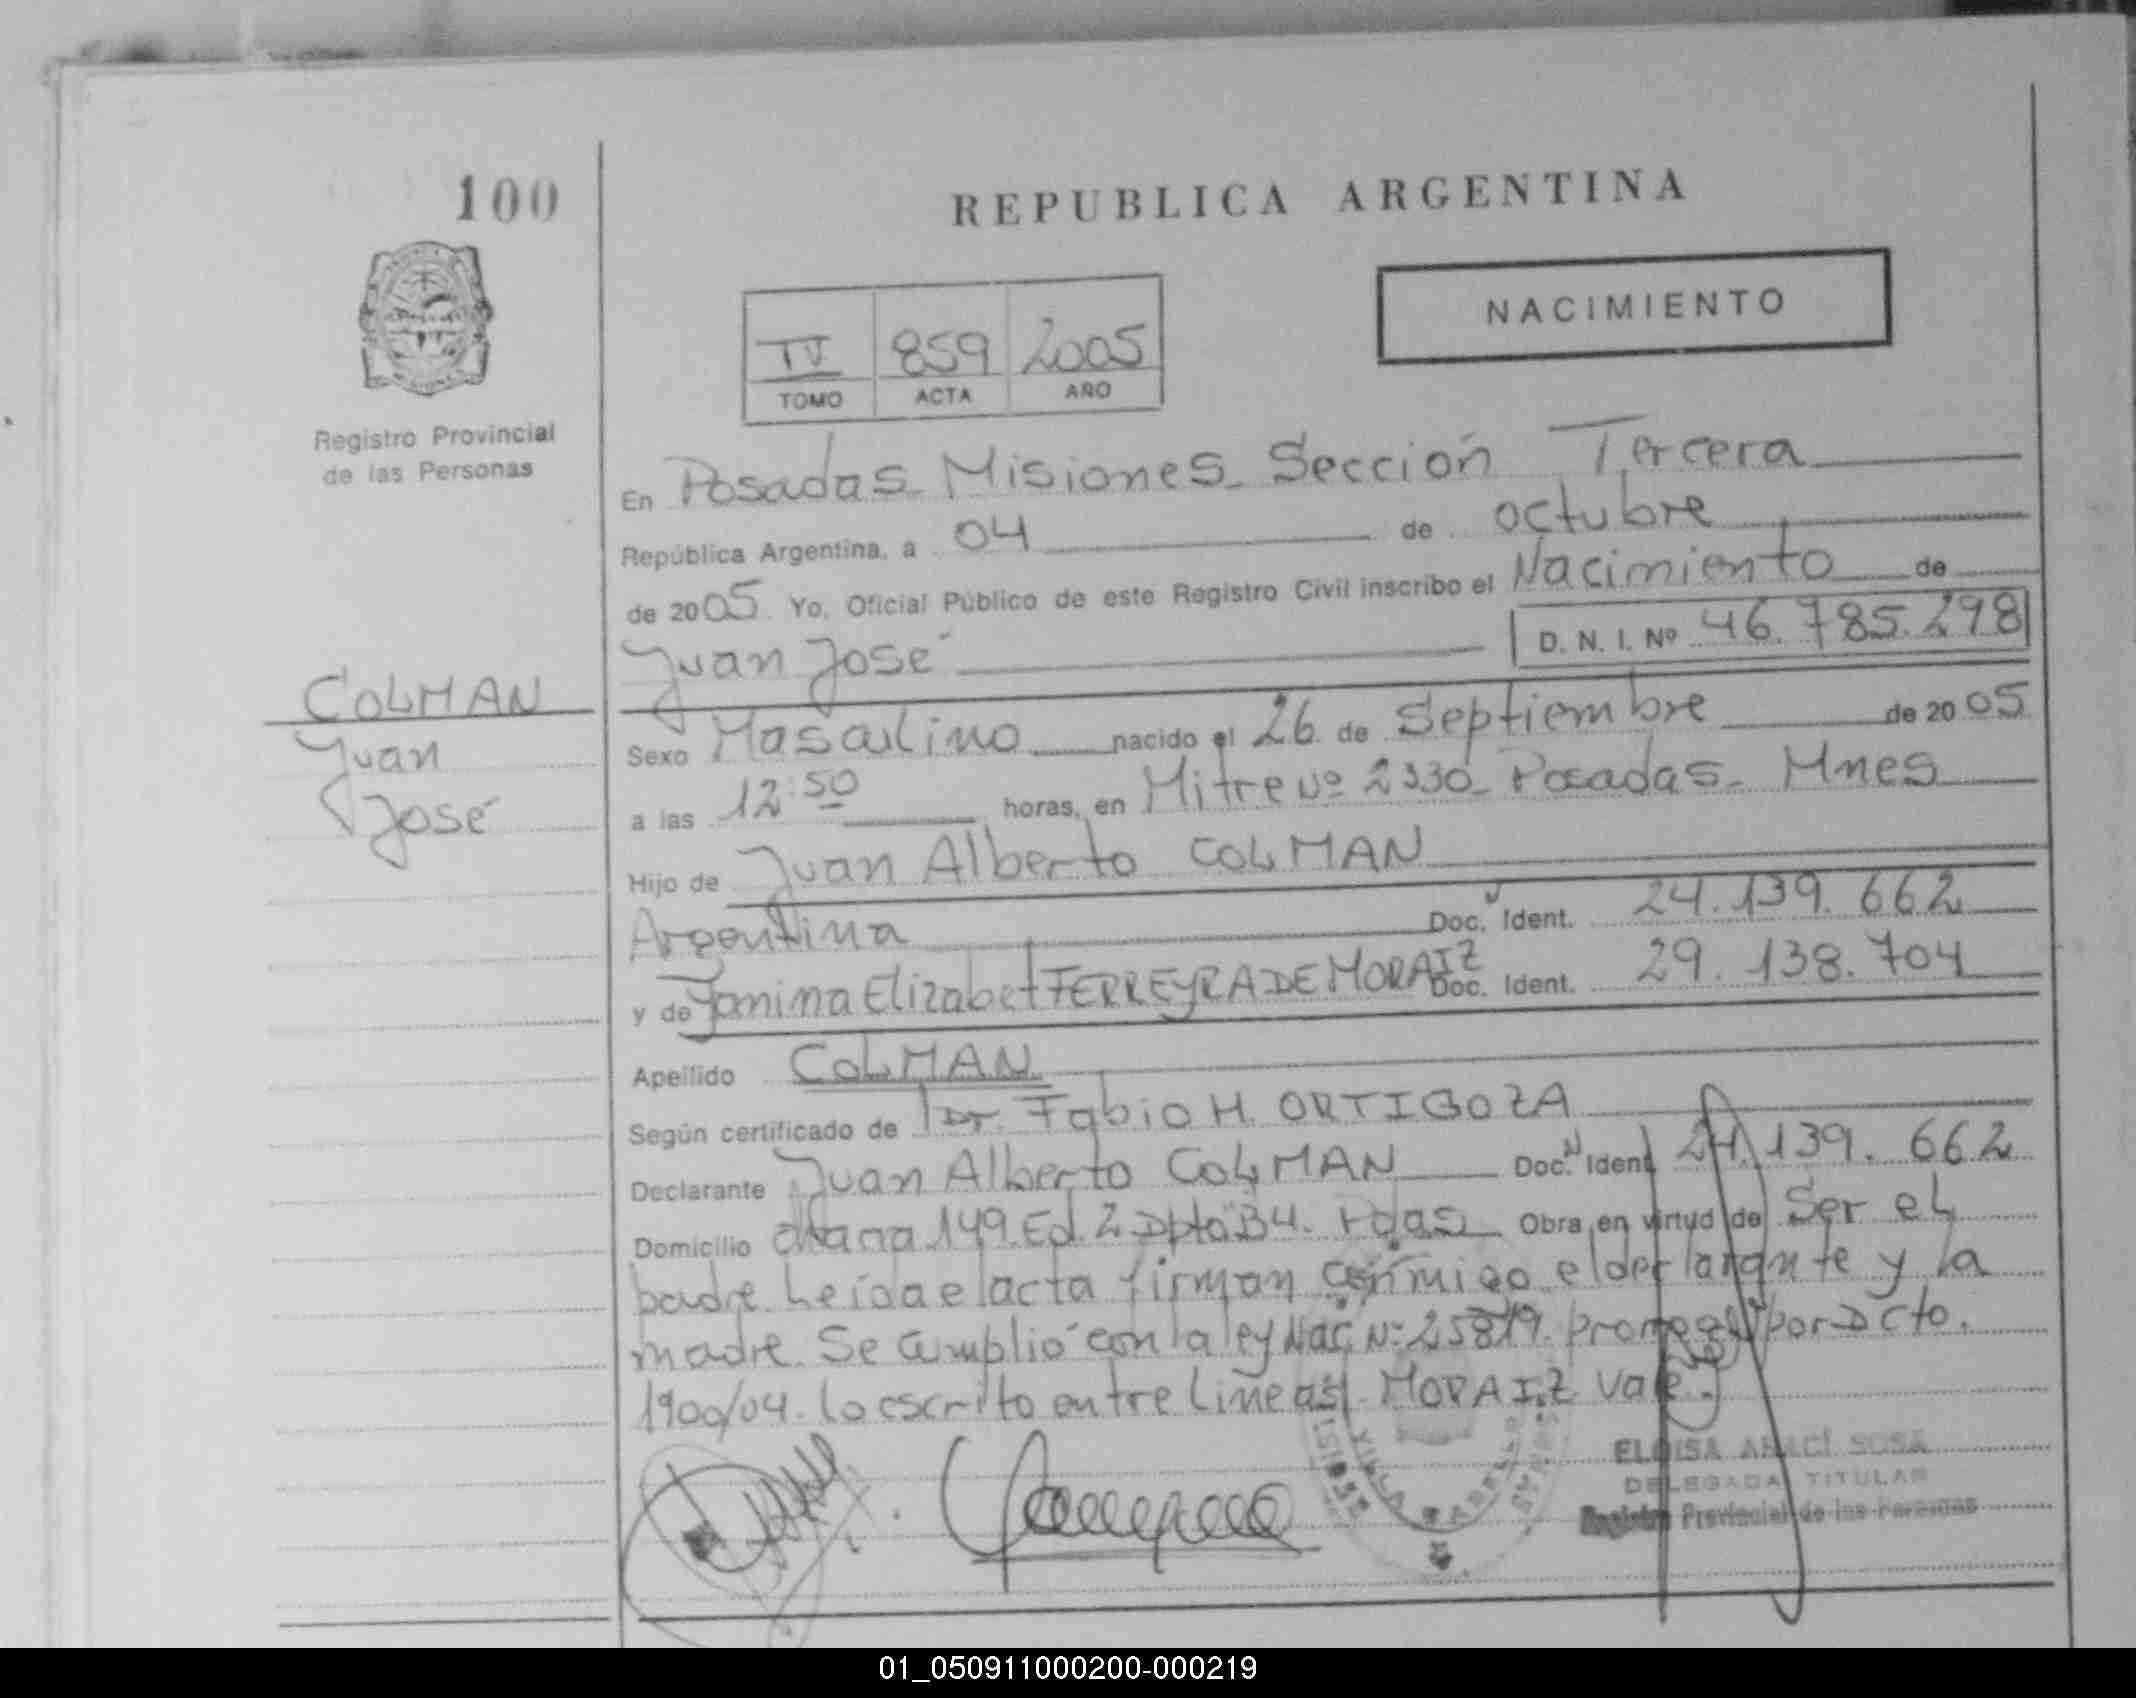 100
REPUBLICA ARGENTINA
NACIMIENTO
IV 859 2005
TOMO ACTA AÑO
Registro Provincial
de las Personas
En Posadas Misiones Sección Tercera
República Argentina, a 04 de octubre
de 2005 Yo, Oficial Público de este Registro Civil inscribo el Nacimiento de
Juan José D. N. I. Nº 46.785.298
COLMAN
Juan
José
Sexo Masculino nacido el 26 de Septiembre de 2005
a las 12:50 horas, en Mitre Nº 2330 Posadas Mnes
Hijo de Juan Alberto COLMAN
Argentina Doc. Ident. 24.139.662
y de Yanina Elizabet FERREYRA DE MORAIZ Doc. Ident. 29.138.704
Apellido COLMAN
Según certificado de Dr. Fabio H. ORTIGOZA
Declarante Juan Alberto COLMAN Doc. Ident 24.139.662
Domicilio 149 Ed. 2 Dpto "B4. Pdas Obra en virtud de Ser el
padre. Leida el acta firman conmigo el declarante y la
madre. Se cumplió con la ley Nac Nº 25819. por Dcto.
1900/04. lo escrito entre lineas MORAIZ Vale.
VILLA CABELLO
ELOISA ARACÍ SOSA
DELEGADA TITULAR
Registro Provincial de las Personas
01_050911000200-000219